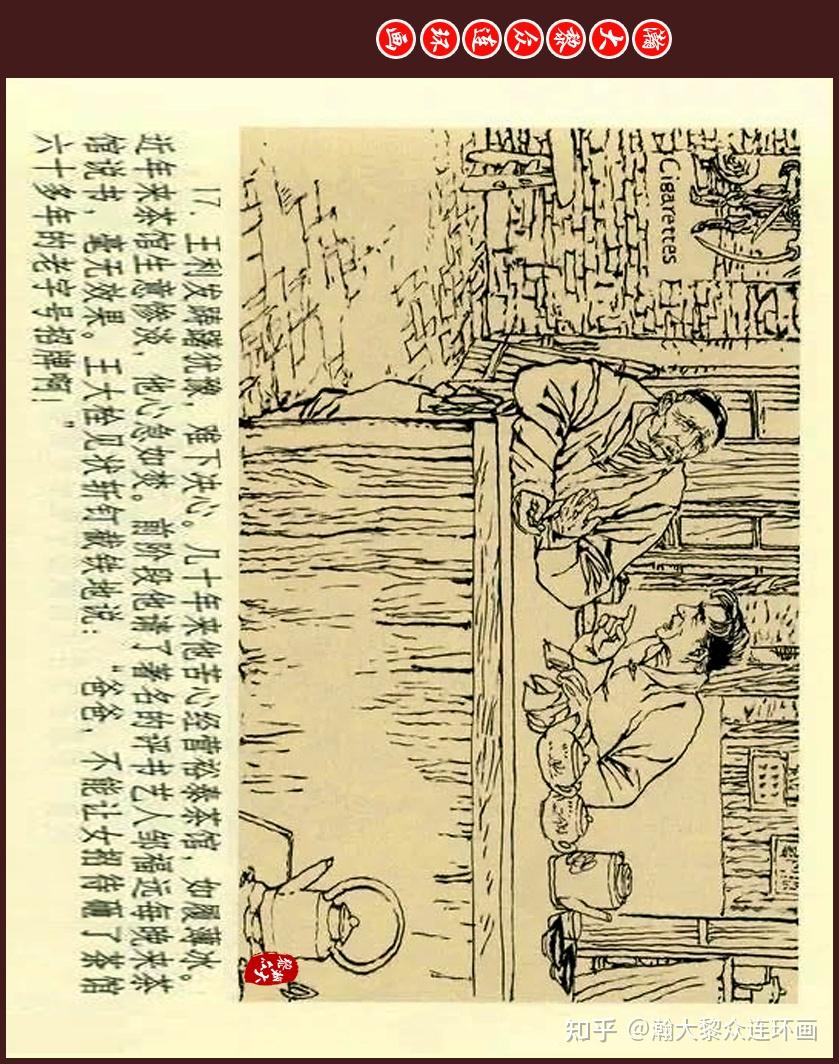 瀚大黎众连环画
Cigarettes
17. 王利发踌躇犹豫，难下决心。几十年来他苦心经营裕泰茶馆，如履薄冰。
近年来茶馆生意惨淡，他心急如焚。前阶段他请了著名的评书艺人邹福远每晚来茶
馆说书，毫无效果。王大栓见状斩钉截铁地说：“爸爸，不能让女招待砸了茶馆
六十多年的老字号招牌啊！”
知乎 @瀚大黎众连环画